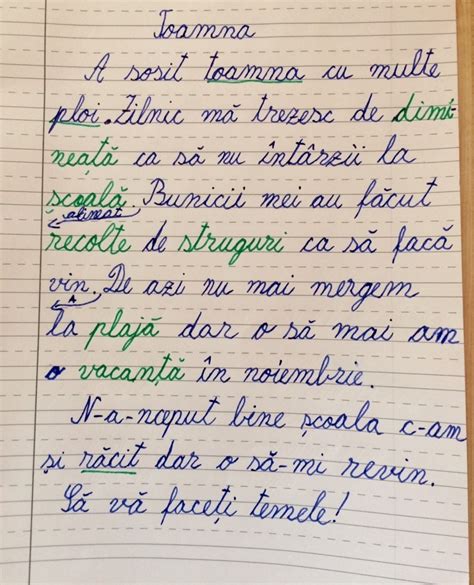 Toamna
A sosit toamna cu multe
ploi. Zilnic mă trezesc de dimi-
neață ca să nu întârzii la
școală. Bunicii mei au făcut
alineat
recolte de struguri ca să facă
vin. De azi nu mai mergem
la plajă dar o să mai am
o vacanță în noiembrie.
N-a-nceput bine școala c-am
și răcit dar o să-mi revin.
Să vă faceți temele!